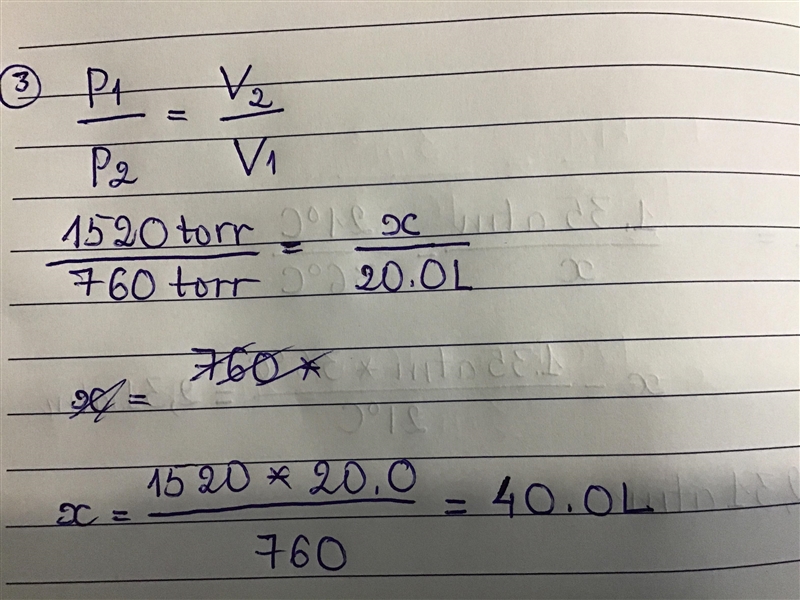 ③ P1/P2 = V2/V1
1520 torr/760 torr = x/20.0L
x = 760 *
x = 1520 * 20.0/760 = 40.0L